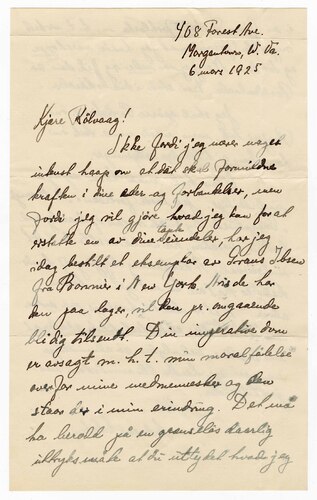 408 Forest Ave.
Morgantown, W. Va.
6 mars 1925
Kjere Rölvaag!
Ikke fordi jeg nærer noget
haap om at det skal formildne
kraften i dine eder og forbandelser, men
fordi jeg vil gjöre hvad jeg kan for at
erstatte en av dine tapte eiendeler, har jeg
idag bestilt et eksemplar av Frans Ibsen
fra Bonnier i New York. Hvis de har
den paa lager, vil den pr. omgaaende
bli dig tilsendt. Din dom
er avsagt m. h. t. min moralfölelse
overfor mine medmennesker og den
staar i min erindring. Det maa
ha berodd på en grænselös daarlig
uttryksmåte at du hvad jeg